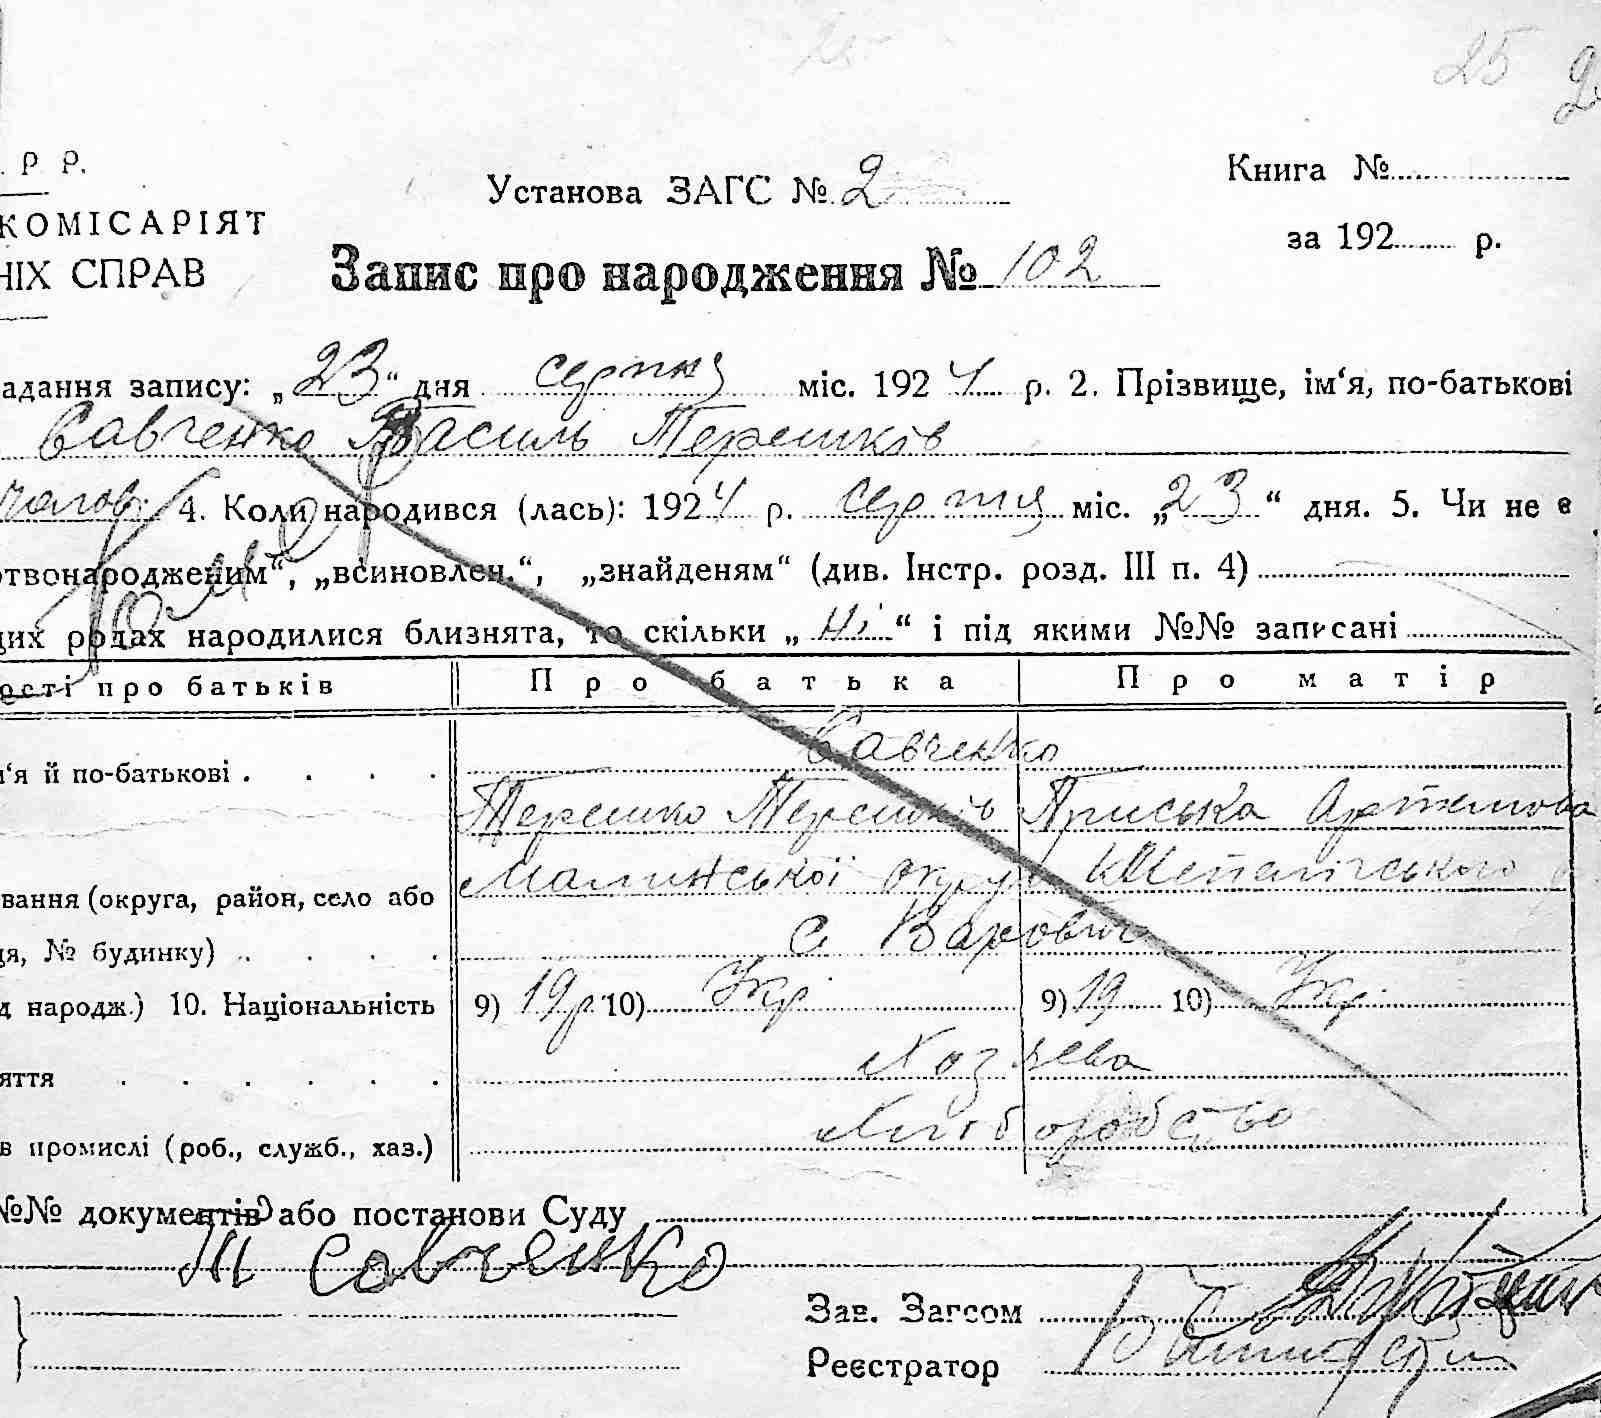 25
25
Р Р.
Установа ЗАГС № 2
Книга №
КОМІСАРІЯТ
за 192 р.
НІХ СПРАВ
Запис про народження № 102
адання запису: „23“ дня серпня міс. 1924 р. 2. Прізвище, ім‘я, по-батькові
Савченко Василь Терешків
чолов. 4. Коли народився (лась): 1924 р. серпня міс. „23“ дня. 5. Чи не є
ртвонародженим“, „всиновлен.“, „знайденям“ (див. Інстр. розд. III п. 4)
цих родах народилися близнята, то скільки „ні“ і під якими №№ записані
ості про батьків Про батька Про матір
Савченко
м‘я й по-батькові . . . .
Терешко Терешків Приська Артемова
Малинської округи Шепелічського
вання (округа, район, село або
с Варовичі
ця, № будинку) . . . .
д народж.) 10. Національність 9) 19 р 10) Укр. 9) 19 10) Укр.
Хозяева
яття . . . . . .
Хліборобство
в промислі (роб., служб., хаз.)
№№ документів або постанови Суду
Т Савченко
Зав. Загсом
Реєстратор